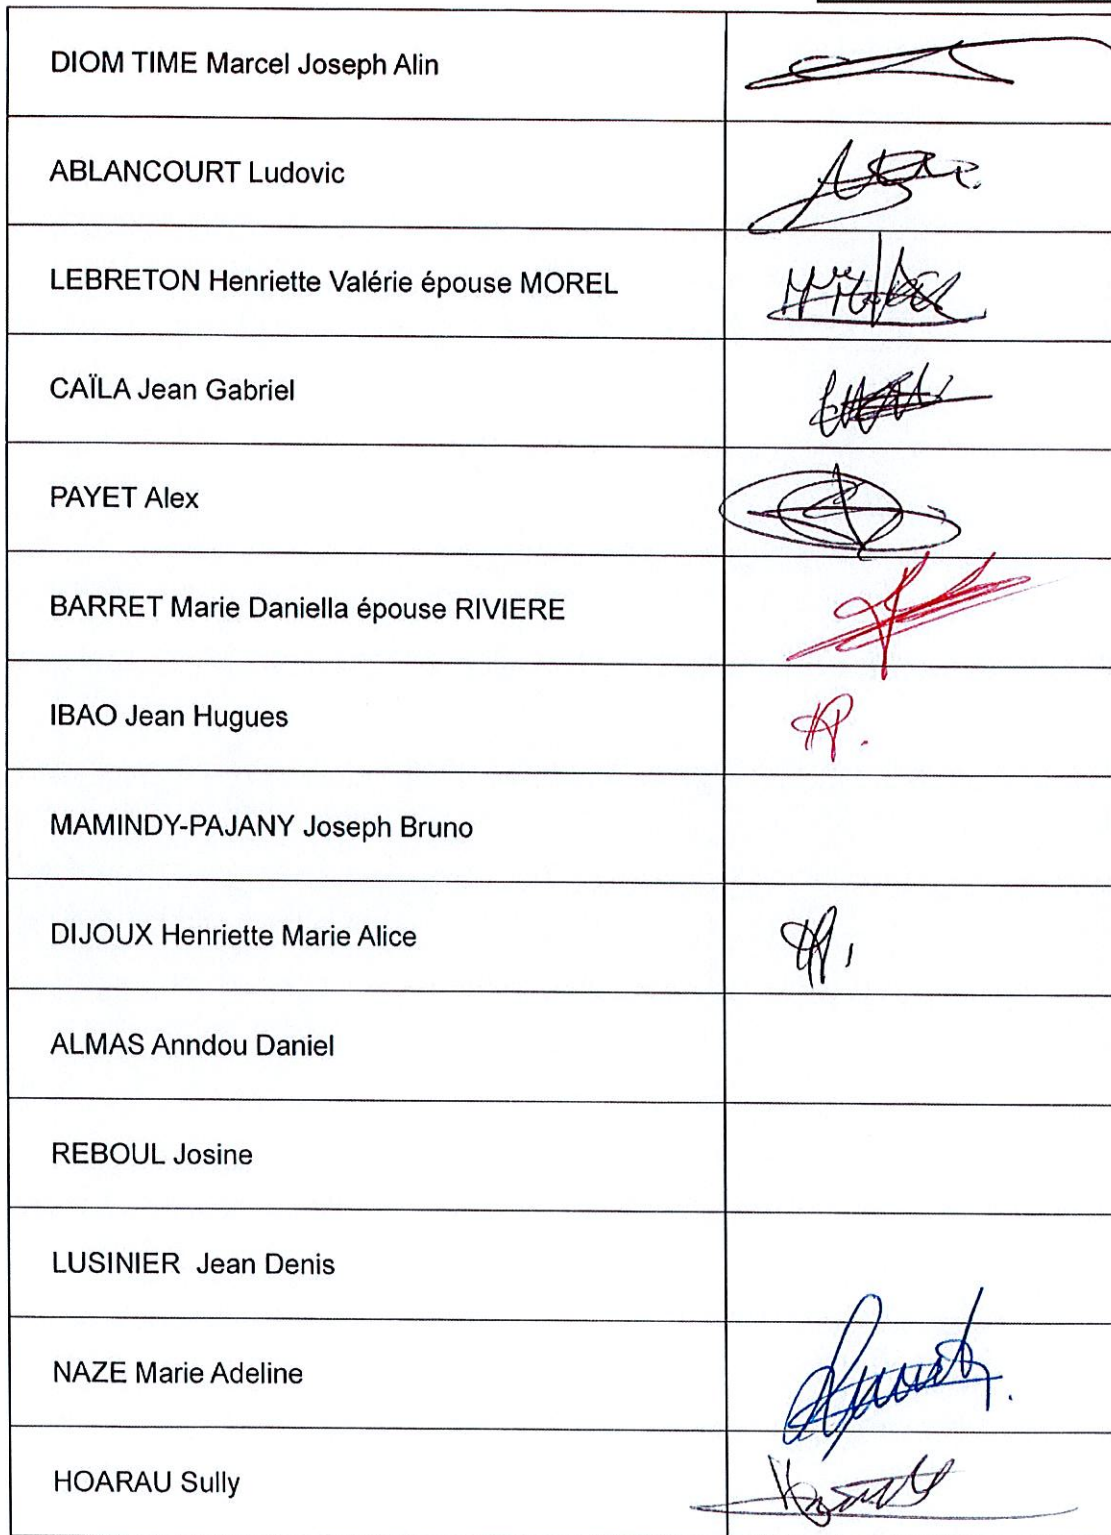 DIOM TIME Marcel Joseph Alin
ABLANCOURT Ludovic
LEBRETON Henriette Valérie épouse MOREL
CAÏLA Jean Gabriel
PAYET Alex
BARRET Marie Daniella épouse RIVIERE
IBAO Jean Hugues
MAMINDY-PAJANY Joseph Bruno
DIJOUX Henriette Marie Alice
ALMAS Anndou Daniel
REBOUL Josine
LUSINIER Jean Denis
NAZE Marie Adeline
HOARAU Sully